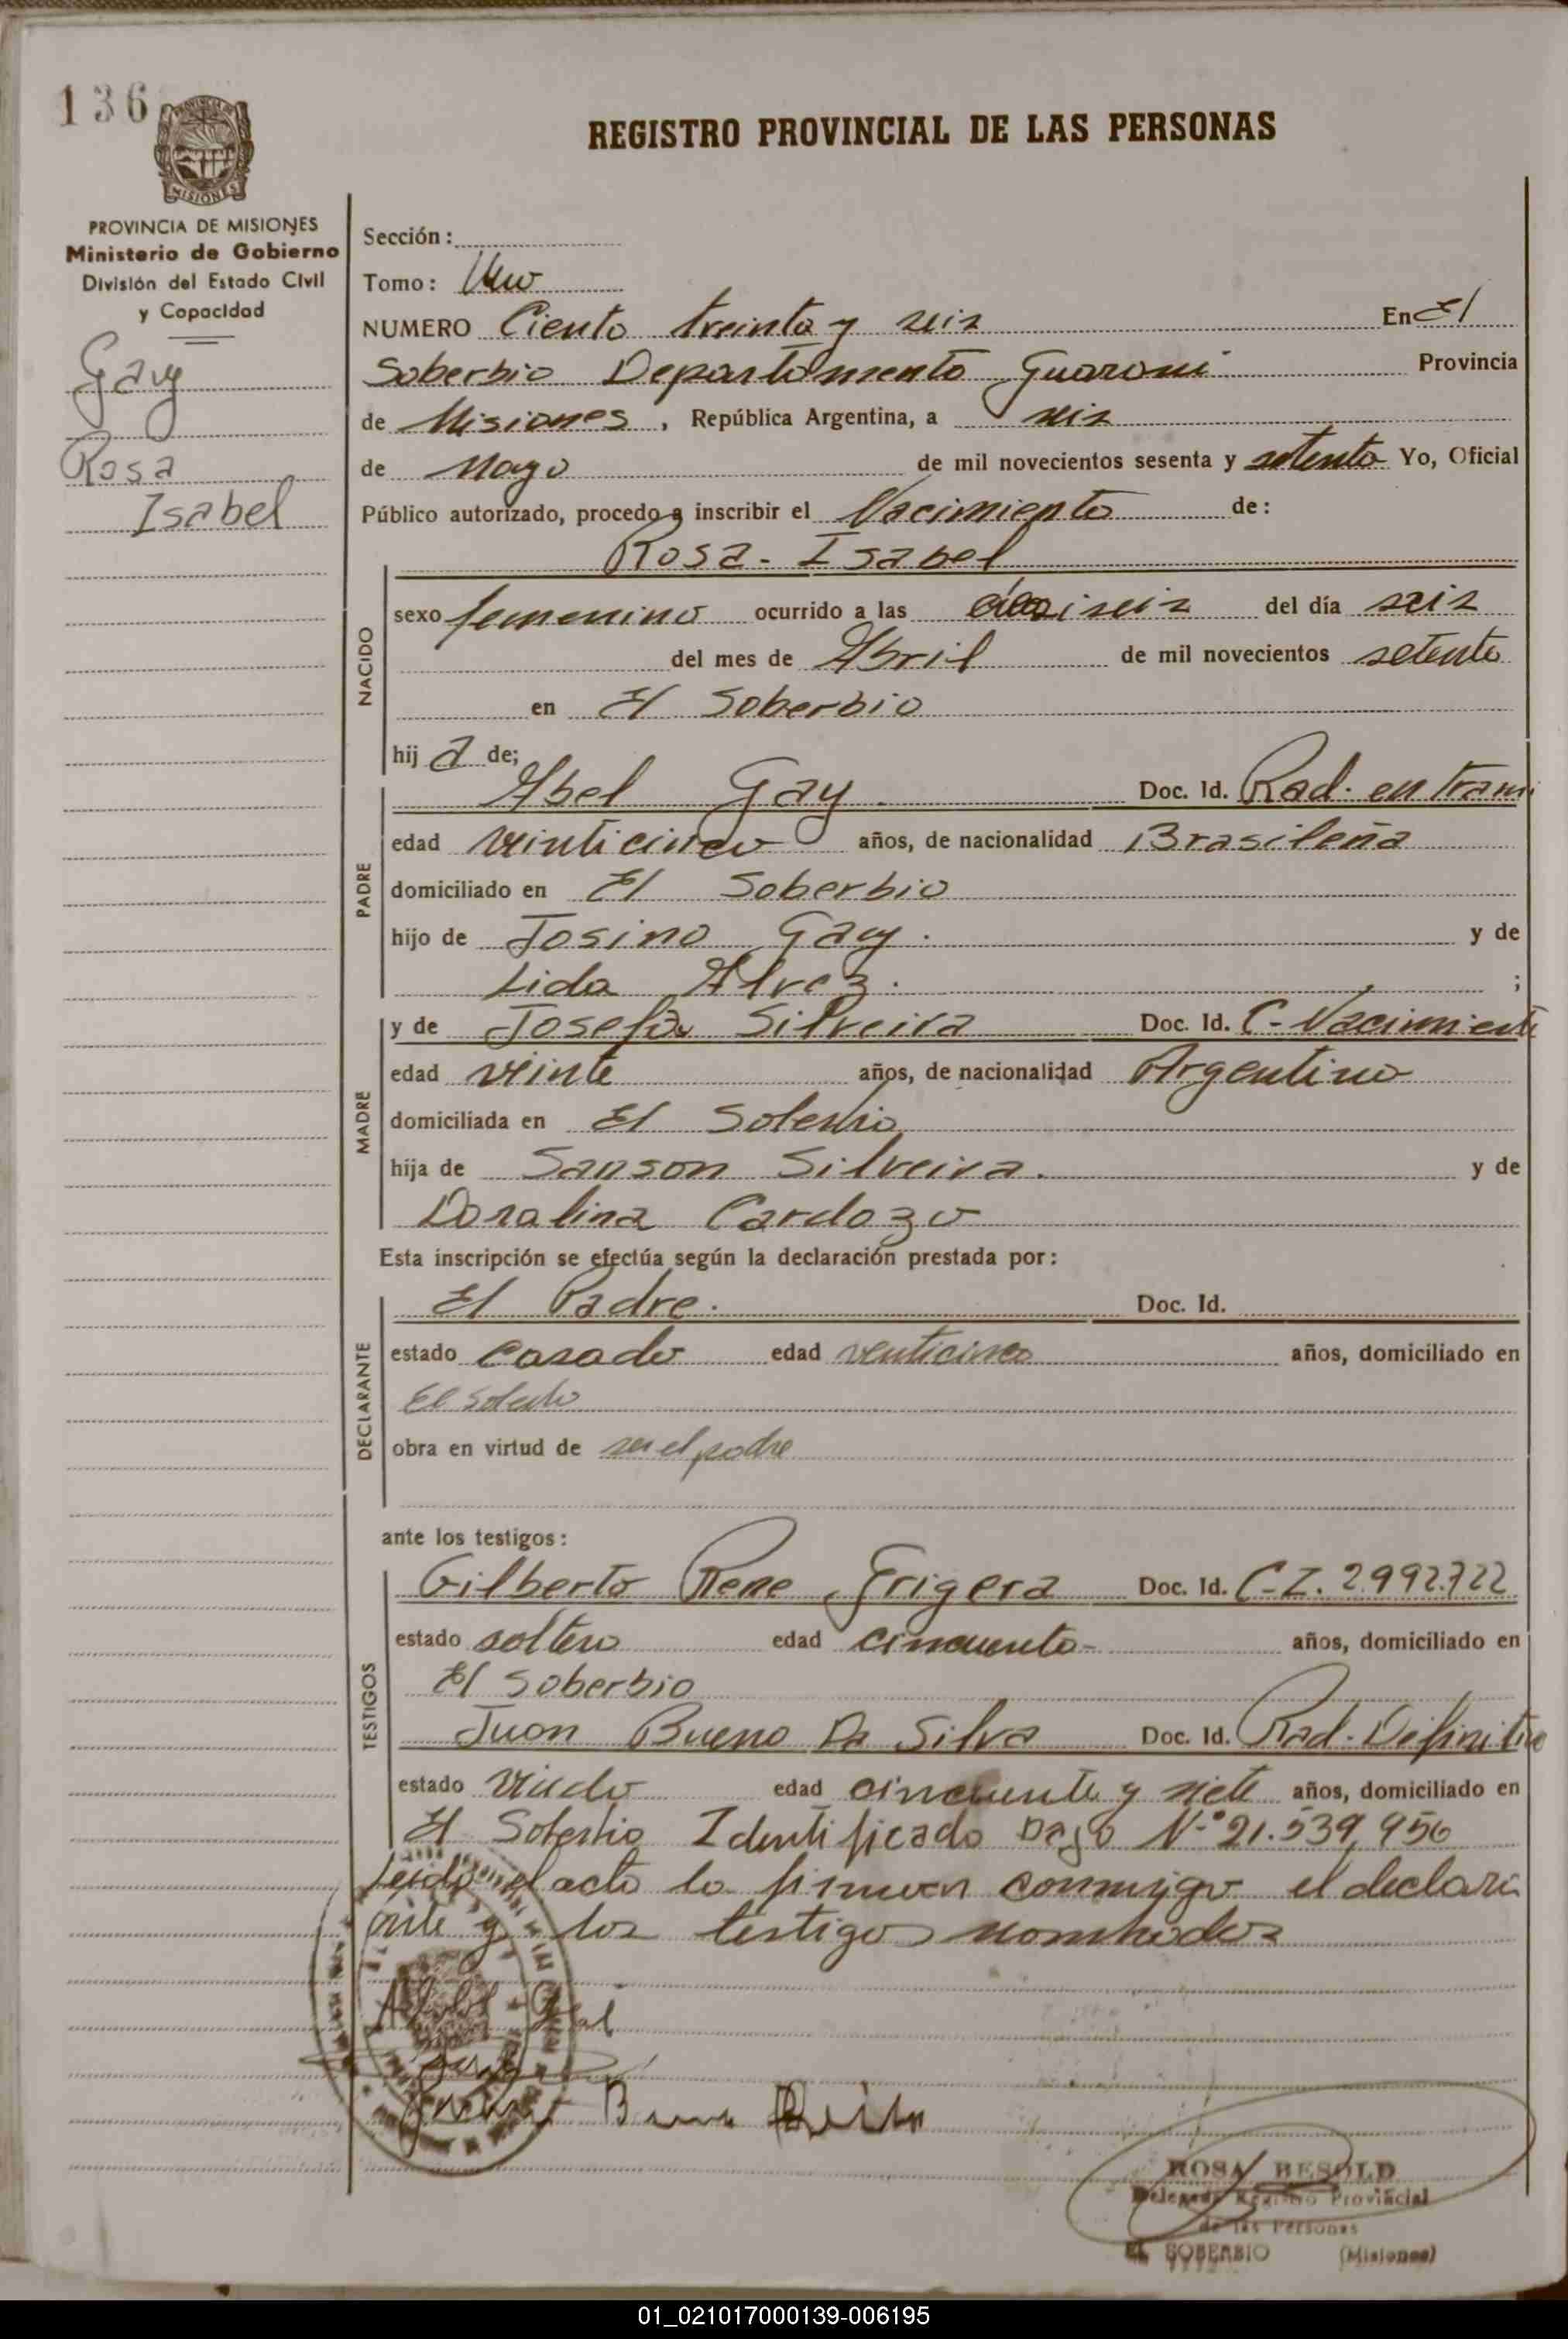 136
REGISTRO PROVINCIAL DE LAS PERSONAS
MISIONES
PROVINCIA DE MISIONES
Ministerio de Gobierno
División del Estado Civil
y Capacidad
Gay
Rosa
Isabel
Sección:
Tomo: Uno
NUMERO Ciento treinta y seis En El
Soberbio Departamento Guarani Provincia
de Misiones, República Argentina, a seis
de Mayo de mil novecientos sesenta y setenta Yo, Oficial
Público autorizado, procedo a inscribir el Nacimiento de:
Rosa - Isabel
NACIDO
sexo femenino ocurrido a las dieciseis del día seis
del mes de Abril de mil novecientos setenta
en El Soberbio
hij a de;
PADRE
Abel Gay. Doc. Id. Rad. en Trami
edad veinticinco años, de nacionalidad Brasileña
domiciliado en El Soberbio
hijo de Josino Gay. y de
Lida Alvez. ;
MADRE
y de Josefa Silveira Doc. Id. C-Nacimiento
edad veinte años, de nacionalidad Argentina
domiciliada en El Soberbio
hija de Sanson Silveira. y de
Doralina Cardozo
Esta inscripción se efectúa según la declaración prestada por:
DECLARANTE
El Padre. Doc. Id.
estado Casado edad venticinco años, domiciliado en
El Soberbio
obra en virtud de ser el padre
ante los testigos:
TESTIGOS
Gilberto Rene Grigera Doc. Id. C-I. 2.992.722
estado soltero edad cincuenta- años, domiciliado en
El Soberbio
Juan Bueno Da Silva Doc. Id. Rad. Definitiv
estado viudo edad cincuenta y siete años, domiciliado en
El Soberbio Identificado Bajo Nº 21.539,956
Leido el acto lo firman conmigo el declara
ante y los testigos nombrados
ROSA BESOLD
Delegada Registro Provincial
de las Personas
EL SOBERBIO (Misiones)
01_021017000139-006195